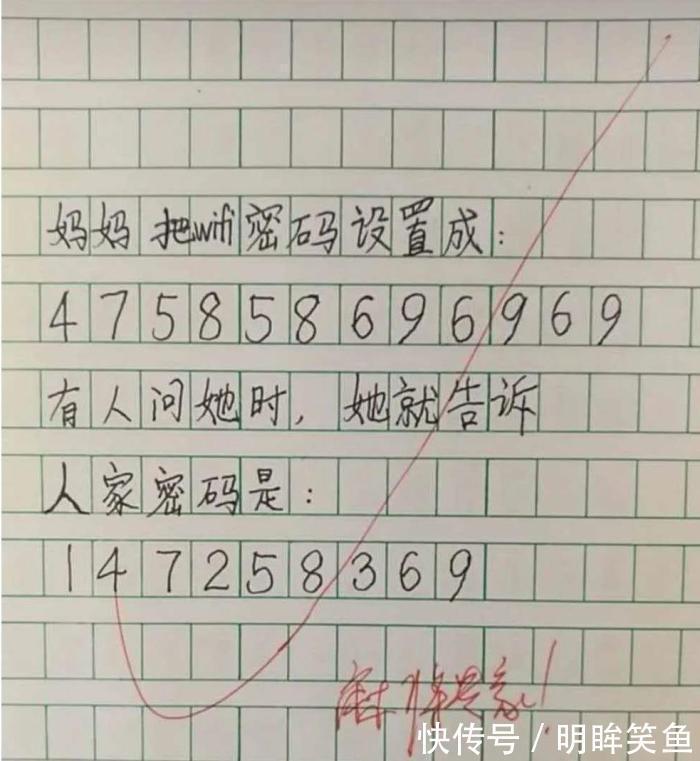 妈妈把wifi密码设置成：
475858696969
有人问她时，她就告诉
人家密码是：
147258369
麻将是家！
快传号/明眸笑鱼